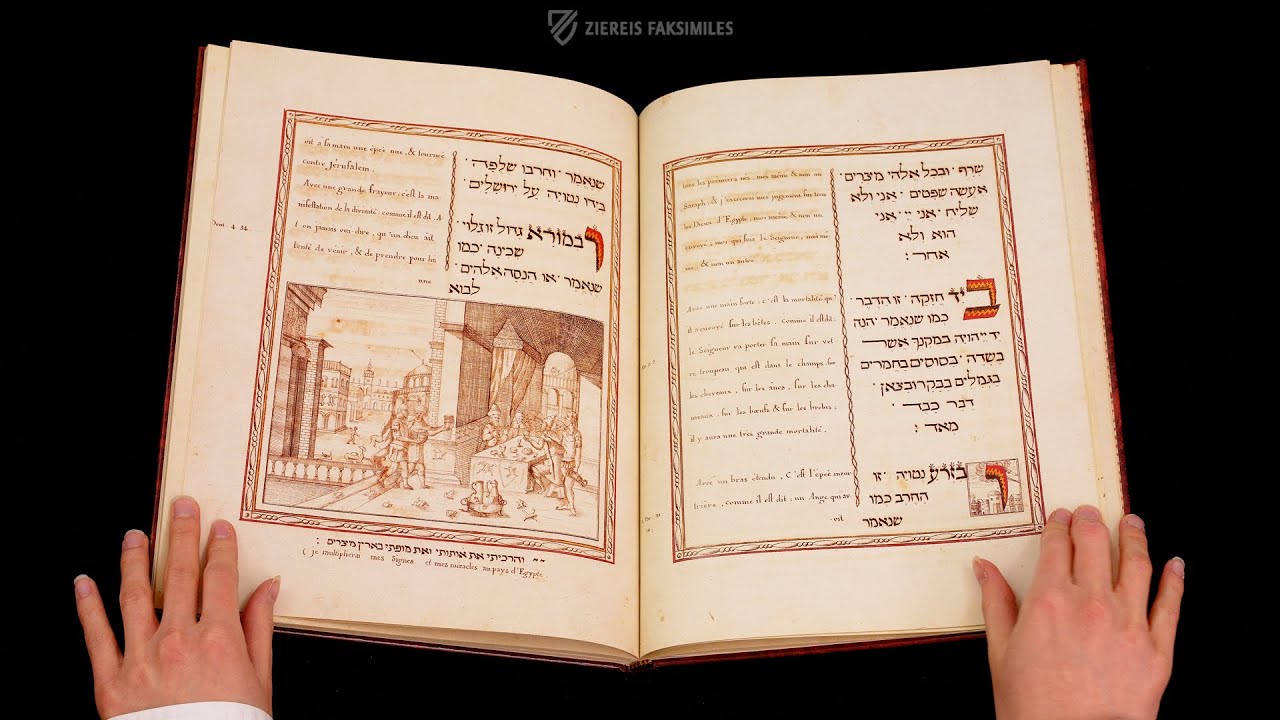 ZIEREIS FAKSIMILES
שרף · ובכל אלהי מצרים ·
אעשה שפטים · אני ולא
שליח · אני יי · אני
הוא ולא
אחר :
ביד חזקה · זו הדבר ·
כמו שנאמר · הנה
יד ייהויה במקנך אשר
בשדה · בסוסים בחמרים
בגמלים בבקר ובצאן ·
דבר כבד
מאד :
ובזרע נטויה · זו
החרב כמו
שנאמר
tous les premiers nés, mes méme & non un
Saraph, & j'exercerai mes jugemens sur tous
les Dieux d'Egypte; moi méme & non un
envoyé, moi qui suis le Seigneur, moi mé-
me, & non un autre.
Avec une main forte; c'est la mortalité qu'
il a envoyé sur les bêtes, comme il est dit:
le Seigneur va porter sa main sur vot-
re troupeau qui est dans le champs, sur
les chevaux, sur les ânes, sur les cha-
meaux, sur les bœufs & sur les brebis;
il y aura une très grande mortalité.
Avec un bras étendu, C'est l'épée meur
trière, comme il est dit: un Ange qu'av-
vit
שנאמר · וחרבו שלפה ·
בידו נטויה על ירושלים ·
ובמורא גדול זו גלוי ·
שכינה · כמו
שנאמר · או הנסה אלהים ·
לבוא
vit a sa main une épée nue, & tournée
contre Jérusalem.
Avec une grande frayeur, c'est la ma-
nifestation de la divinité; comme il est dit. A
t on jamais oui-dire, qu'un dieu ait
tenté de venir, & de prendre pour lui
une
Deut. 4. 34.
והרביתי את אותותי ואת מופתי בארץ מצרים :
( je multiplierai mes Signes et mes miracles au pays d'Egypte.